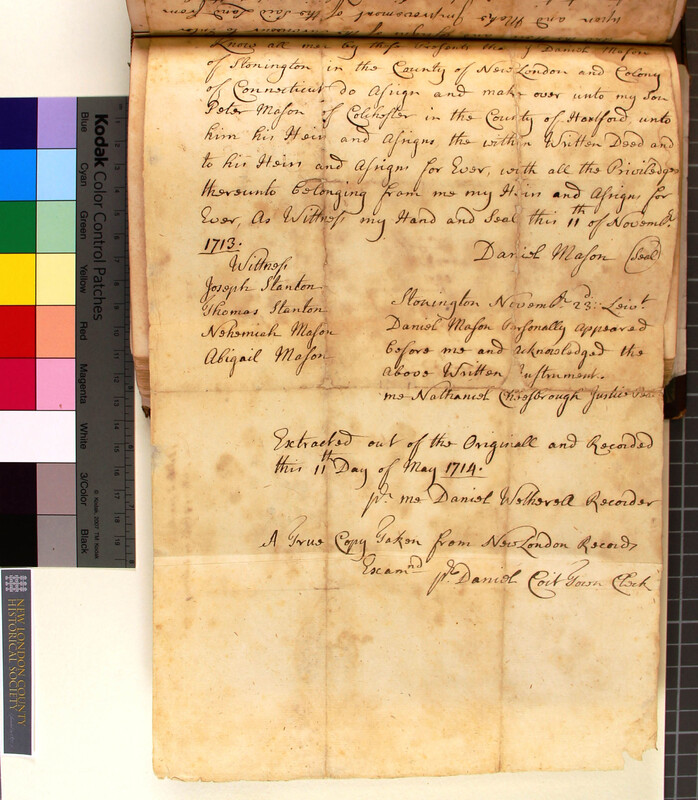 upon and Make Improvement of the said Land from
Know all men by these Presents that I Daniel Mason
of Stonington in the County of New London and Colony
of Connecticut do Asign and make over unto my Son
Peter Mason of Colchester in the County of Hartford unto
him his Heirs and Asigns the within Written Deed and
to his Heirs and Asigns for Ever, with all the Priviledges
thereunto belonging from me my Heirs and Asigns for
Ever, As Wittness my Hand and Seal this 11th of Novembr.
1713.
Daniel Mason (Seal)
Wittness
Joseph Stanton
Thomas Stanton
Nehemiah Mason
Abigail Mason
Stonington Novembr. 23d:: Leivt.
Daniel Mason Parsonally appeared
before me and acknowledged the
above Written Instrument.
me Nathaniel Cheesbrough Justice Peace
Extracted out of the Originall and Recorded
this 11th Day of May 1714.
pr. me Daniel Wetherell Recorder
A True Copy Taken from New London Records
Examnd pr. Daniel Coit Town Clerk
Kodak Color Control Patches
Blue Cyan Green Yellow Red Magenta White 3/Color Black
© Kodak, 2007 TM: Kodak
NEW LONDON COUNTY
HISTORICAL SOCIETY